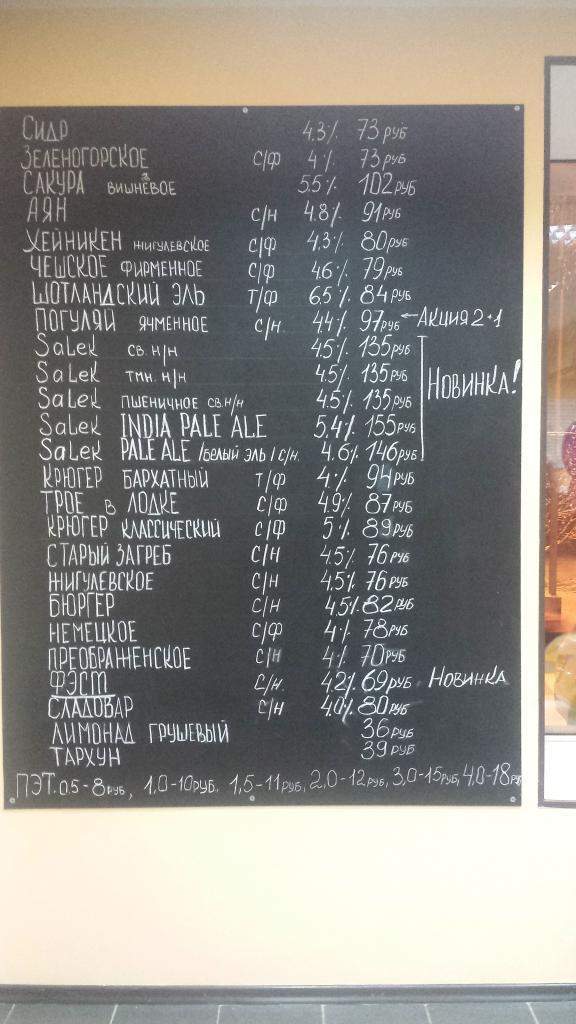 СИДР 4.3% 73 РУБ
ЗЕЛЕНОГОРСКОЕ С/Ф 4% 73 РУБ
САКУРА ВИШНЁВОЕ 5.5% 102 РУБ
АЯН С/Н 4.8% 91 РУБ
ХЕЙНИКЕН ЖИГУЛЕВСКОЕ С/Ф 4.3% 80 РУБ
ЧЕШСКОЕ ФИРМЕННОЕ С/Ф 4.6% 79 РУБ
ШОТЛАНДСКИЙ ЭЛЬ Т/Ф 6.5% 84 РУБ
ПОГУЛЯЙ ЯЧМЕННОЕ С/Н. 4.4% 97 РУБ ←АКЦИЯ 2+1
SaLeK СВ. Н/Н 4.5% 135 РУБ
SaLeK ТМН. Н/Н 4.5% 135 РУБ НОВИНКА!
SaLeK ПШЕНИЧНОЕ СВ. Н/Н 4.5% 135 РУБ
SaLeK INDIA PALE ALE 5.4% 155 РУБ
SaLeK PALE ALE /БЕЛЫЙ ЭЛЬ/ С/Н. 4.6% 146 РУБ
КРЮГЕР БАРХАТНЫЙ Т/Ф 4% 94 РУБ
ТРОЕ В ЛОДКЕ С/Ф 4.9% 87 РУБ
КРЮГЕР КЛАССИЧЕСКИЙ С/Ф 5% 89 РУБ
СТАРЫЙ ЗАГРЕБ С/Н 4.5% 76 РУБ
ЖИГУЛЕВСКОЕ С/Н 4.5% 76 РУБ
БЮРГЕР С/Н 4.5% 82 РУБ
НЕМЕЦКОЕ С/Ф 4% 78 РУБ
ПРЕОБРАЖЕНСКОЕ С/Н 4% 70 РУБ
ФЭСТ С/Н. 4.2% 69 РУБ НОВИНКА
СЛАДОВАР С/Н 4.0% 80 РУБ
ЛИМОНАД ГРУШЕВЫЙ 36 РУБ
ТАРХУН 39 РУБ
ПЭТ. 0.5-8 РУБ, 1,0-10 РУБ. 1,5-11 РУБ, 2,0-12 РУБ, 3,0-15 РУБ, 4,0-18 РУБ